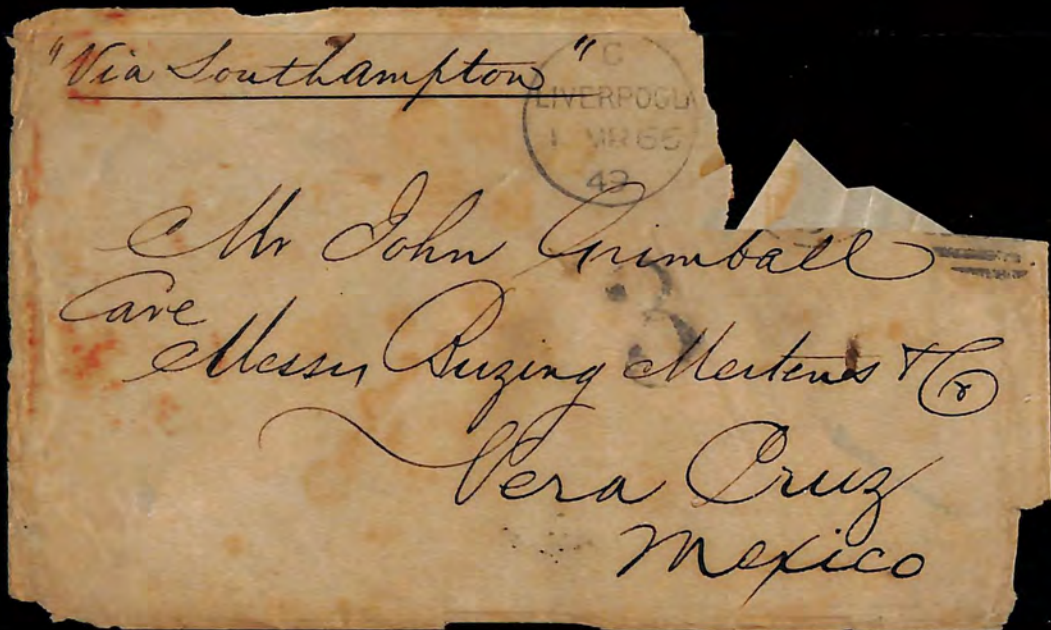 "Via Southampton"
C
LIVERPOOL
1 MR 66
49
Mr John Grimball
3
Care
Messrs Buzing Mertens & Co
Vera Cruz
Mexico